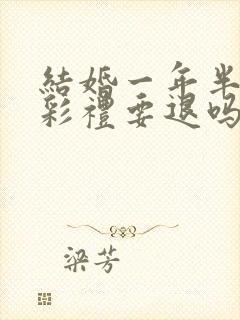 結婚一年半
彩禮要退吗
梁芳